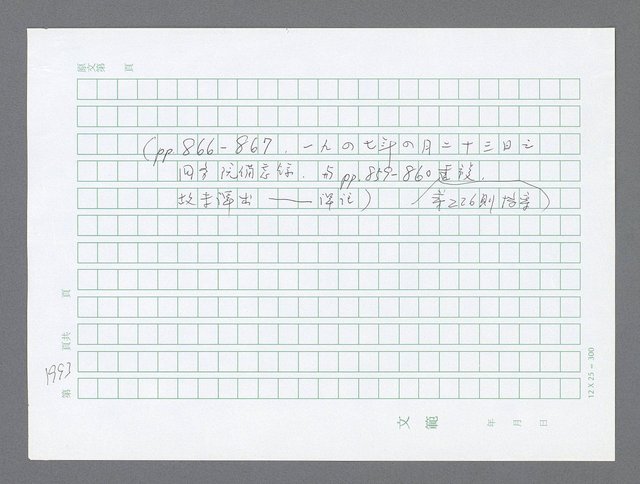 原文第　頁
(pp.866-867，一九四七年四月二十三日之
國務院備忘錄，與pp.859-860重複，
故未譯出——譯註)
第226則檔案)
頁
頁共
1993
第
12×25=300
文範
年　月　日